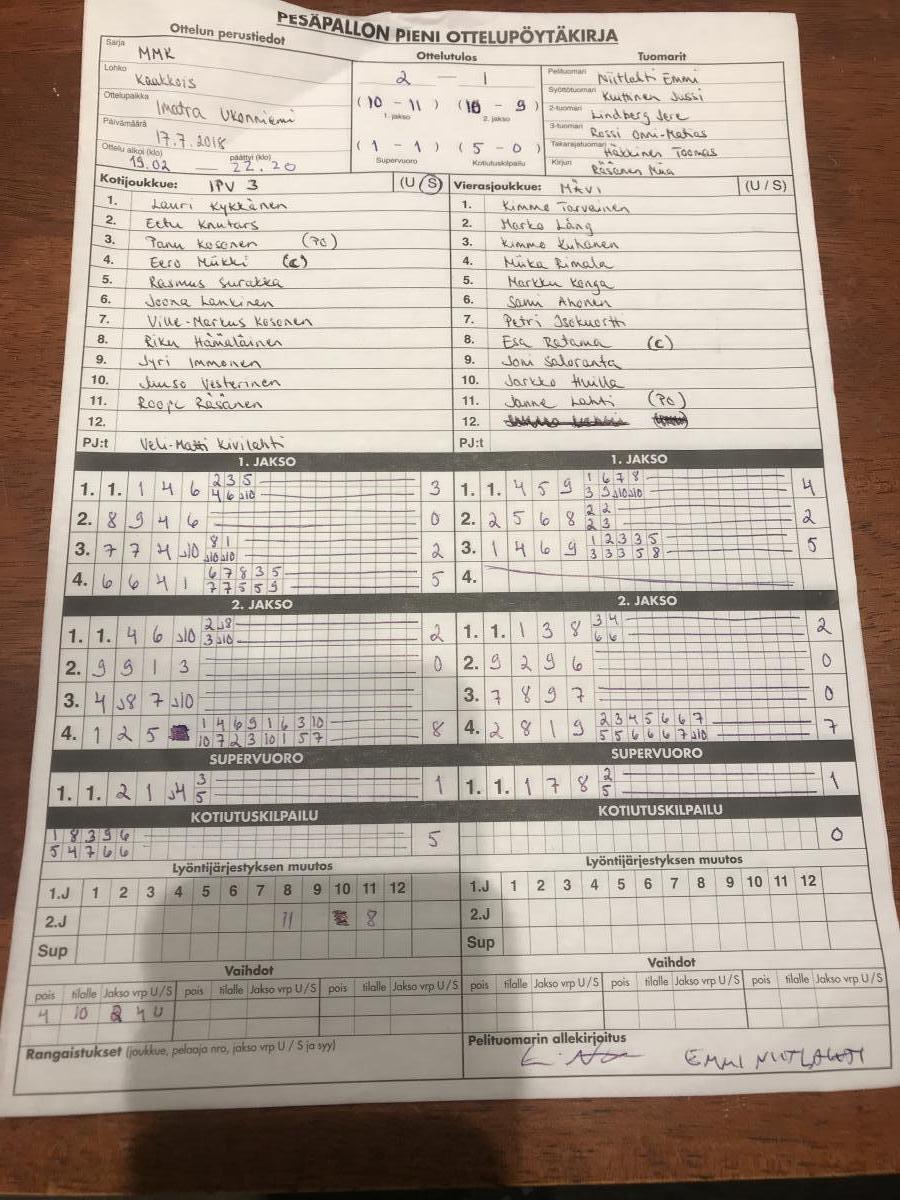 PESÄPALLON PIENI OTTELUPÖYTÄKIRJA
Ottelun perustiedot
Sarja MMK
Lohko Kaakkois
Ottelupaikka Imatra Ukonniemi
Päivämäärä 17.7.2018
Ottelu alkoi (klo) 19.02 — päättyi (klo) 22.20
Ottelutulos
2 — 1
(10 - 11) (10 - 9)
1. jakso 2. jakso
(1 - 1) (5 - 0)
Supervuoro Kotiutuskilpailu
Tuomarit
Pelituomari Niitlahti Emmi
Syöttötuomari Kuittinen Jussi
2-tuomari Lindberg Jere
3-tuomari Rossi Onni-Matias
Takarajatuomari Häkkinen Toomas
Kirjuri Räsänen Miia
Kotijoukkue: IPV 3 (U/S)
1. Lauri Kykkänen
2. Eetu Knutars
3. Panu Kosonen (PO)
4. Eero Miikki (C)
5. Rasmus Surakka
6. Joona Lankinen
7. Ville-Markus Kosonen
8. Riku Hämäläinen
9. Jyri Immonen
10. Juuso Vesterinen
11. Roope Räsänen
12.
PJ:t Veli-Matti Kivilahti
Vierasjoukkue: MÄVI (U/S)
1. Kimmo Tarvainen
2. Marko Lång
3. Kimmo Kuhanen
4. Miika Rimala
5. Markku Konga
6. Sami Ahonen
7. Petri Isokuortti
8. Esa Ratama (C)
9. Joni Saloranta
10. Jarkko Huilla
11. Janne Lahti (PO)
12.
PJ:t
1. JAKSO
1. 1. 1 4 6 2 3 5 3
4 6 J10
2. 8 9 4 6 0
3. 7 7 4 J10 8 1 2
J10 J10
4. 6 6 4 1 6 7 8 3 5 5
7 7 5 5 9
2. JAKSO
1. 1. 4 6 J10 2 J8 2
3 J10
2. 9 9 1 3 0
3. 4 J8 7 J10 0
4. 1 2 5 1 4 6 9 1 6 3 10 8
10 7 2 3 10 1 5 7
SUPERVUORO
1. 1. 2 1 J4 3 1
5
KOTIUTUSKILPAILU
1 8 3 9 6 5
5 4 7 6 6
1. JAKSO
1. 1. 4 5 9 1 6 7 8 4
3 9 J10 J10
2. 2 5 6 8 2 2 2
2 3
3. 1 4 6 9 1 2 3 3 5 5
3 3 3 5 8
4.
2. JAKSO
1. 1. 1 3 8 3 4 2
6 6
2. 9 2 9 6 0
3. 7 8 9 7 0
4. 2 8 1 9 2 3 4 5 6 6 7 7
5 5 6 6 6 7 J10
SUPERVUORO
1. 1. 1 7 8 2 1
5
KOTIUTUSKILPAILU
0
Lyöntijärjestyksen muutos
1.J 1 2 3 4 5 6 7 8 9 10 11 12
2.J 11 8
Sup
Lyöntijärjestyksen muutos
1.J 1 2 3 4 5 6 7 8 9 10 11 12
2.J
Sup
Vaihdot
pois tilalle Jakso vrp U/S pois tilalle Jakso vrp U/S pois tilalle Jakso vrp U/S
4 10 2 4 U
Vaihdot
pois tilalle Jakso vrp U/S pois tilalle Jakso vrp U/S pois tilalle Jakso vrp U/S
Rangaistukset (joukkue, pelaaja nro, jakso vrp U / S ja syy)
Pelituomarin allekirjoitus
EMMI NIITLAHTI